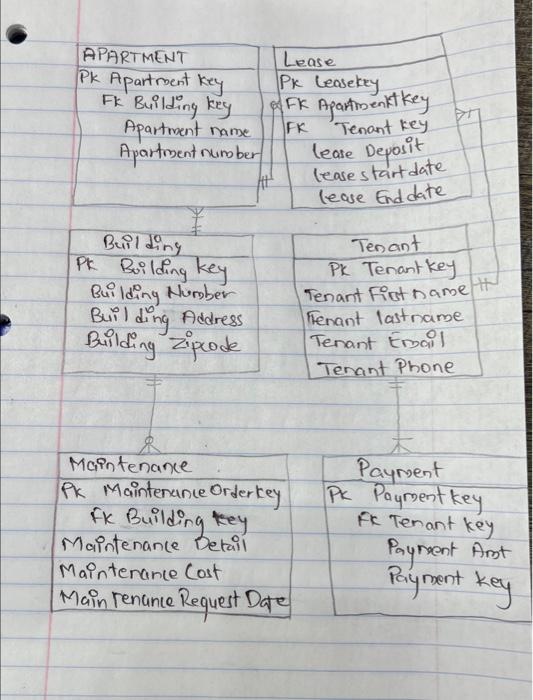 APARTMENT
PK Apartment key
FK Building key
Apartment name
Apartment number
Lease
PK Leasekey
FK Apartment key
FK Tenant key
Lease Deposit
Lease start date
Lease End date
Building
PK Building key
Building Number
Building Address
Building Zipcode
Tenant
PK Tenant key
Tenant First name
Tenant lastname
Tenant Email
Tenant Phone
Maintenance
PK Maintenance Orderkey
FK Building key
Maintenance Detail
Maintenance Cost
Maintenance Request Date
Payment
PK Payment key
FK Tenant key
Payment Amt
Payment key